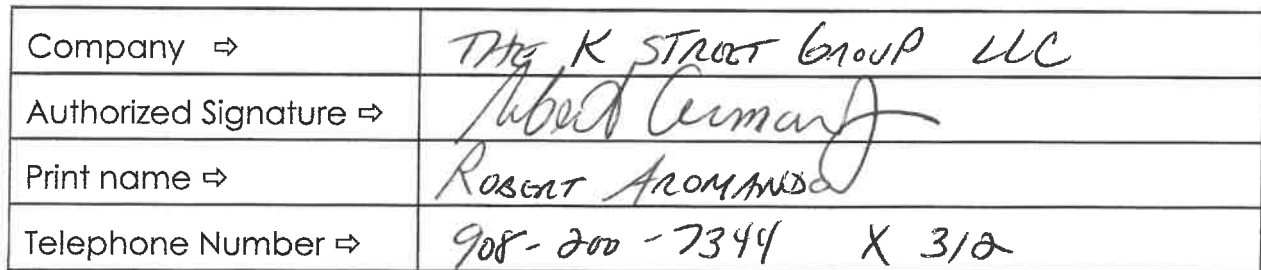 Company ⇨ THE K STREET GROUP LLC
Authorized Signature ⇨
Print name ⇨ ROBERT AROMANDO
Telephone Number ⇨ 908-200-7344 X 312